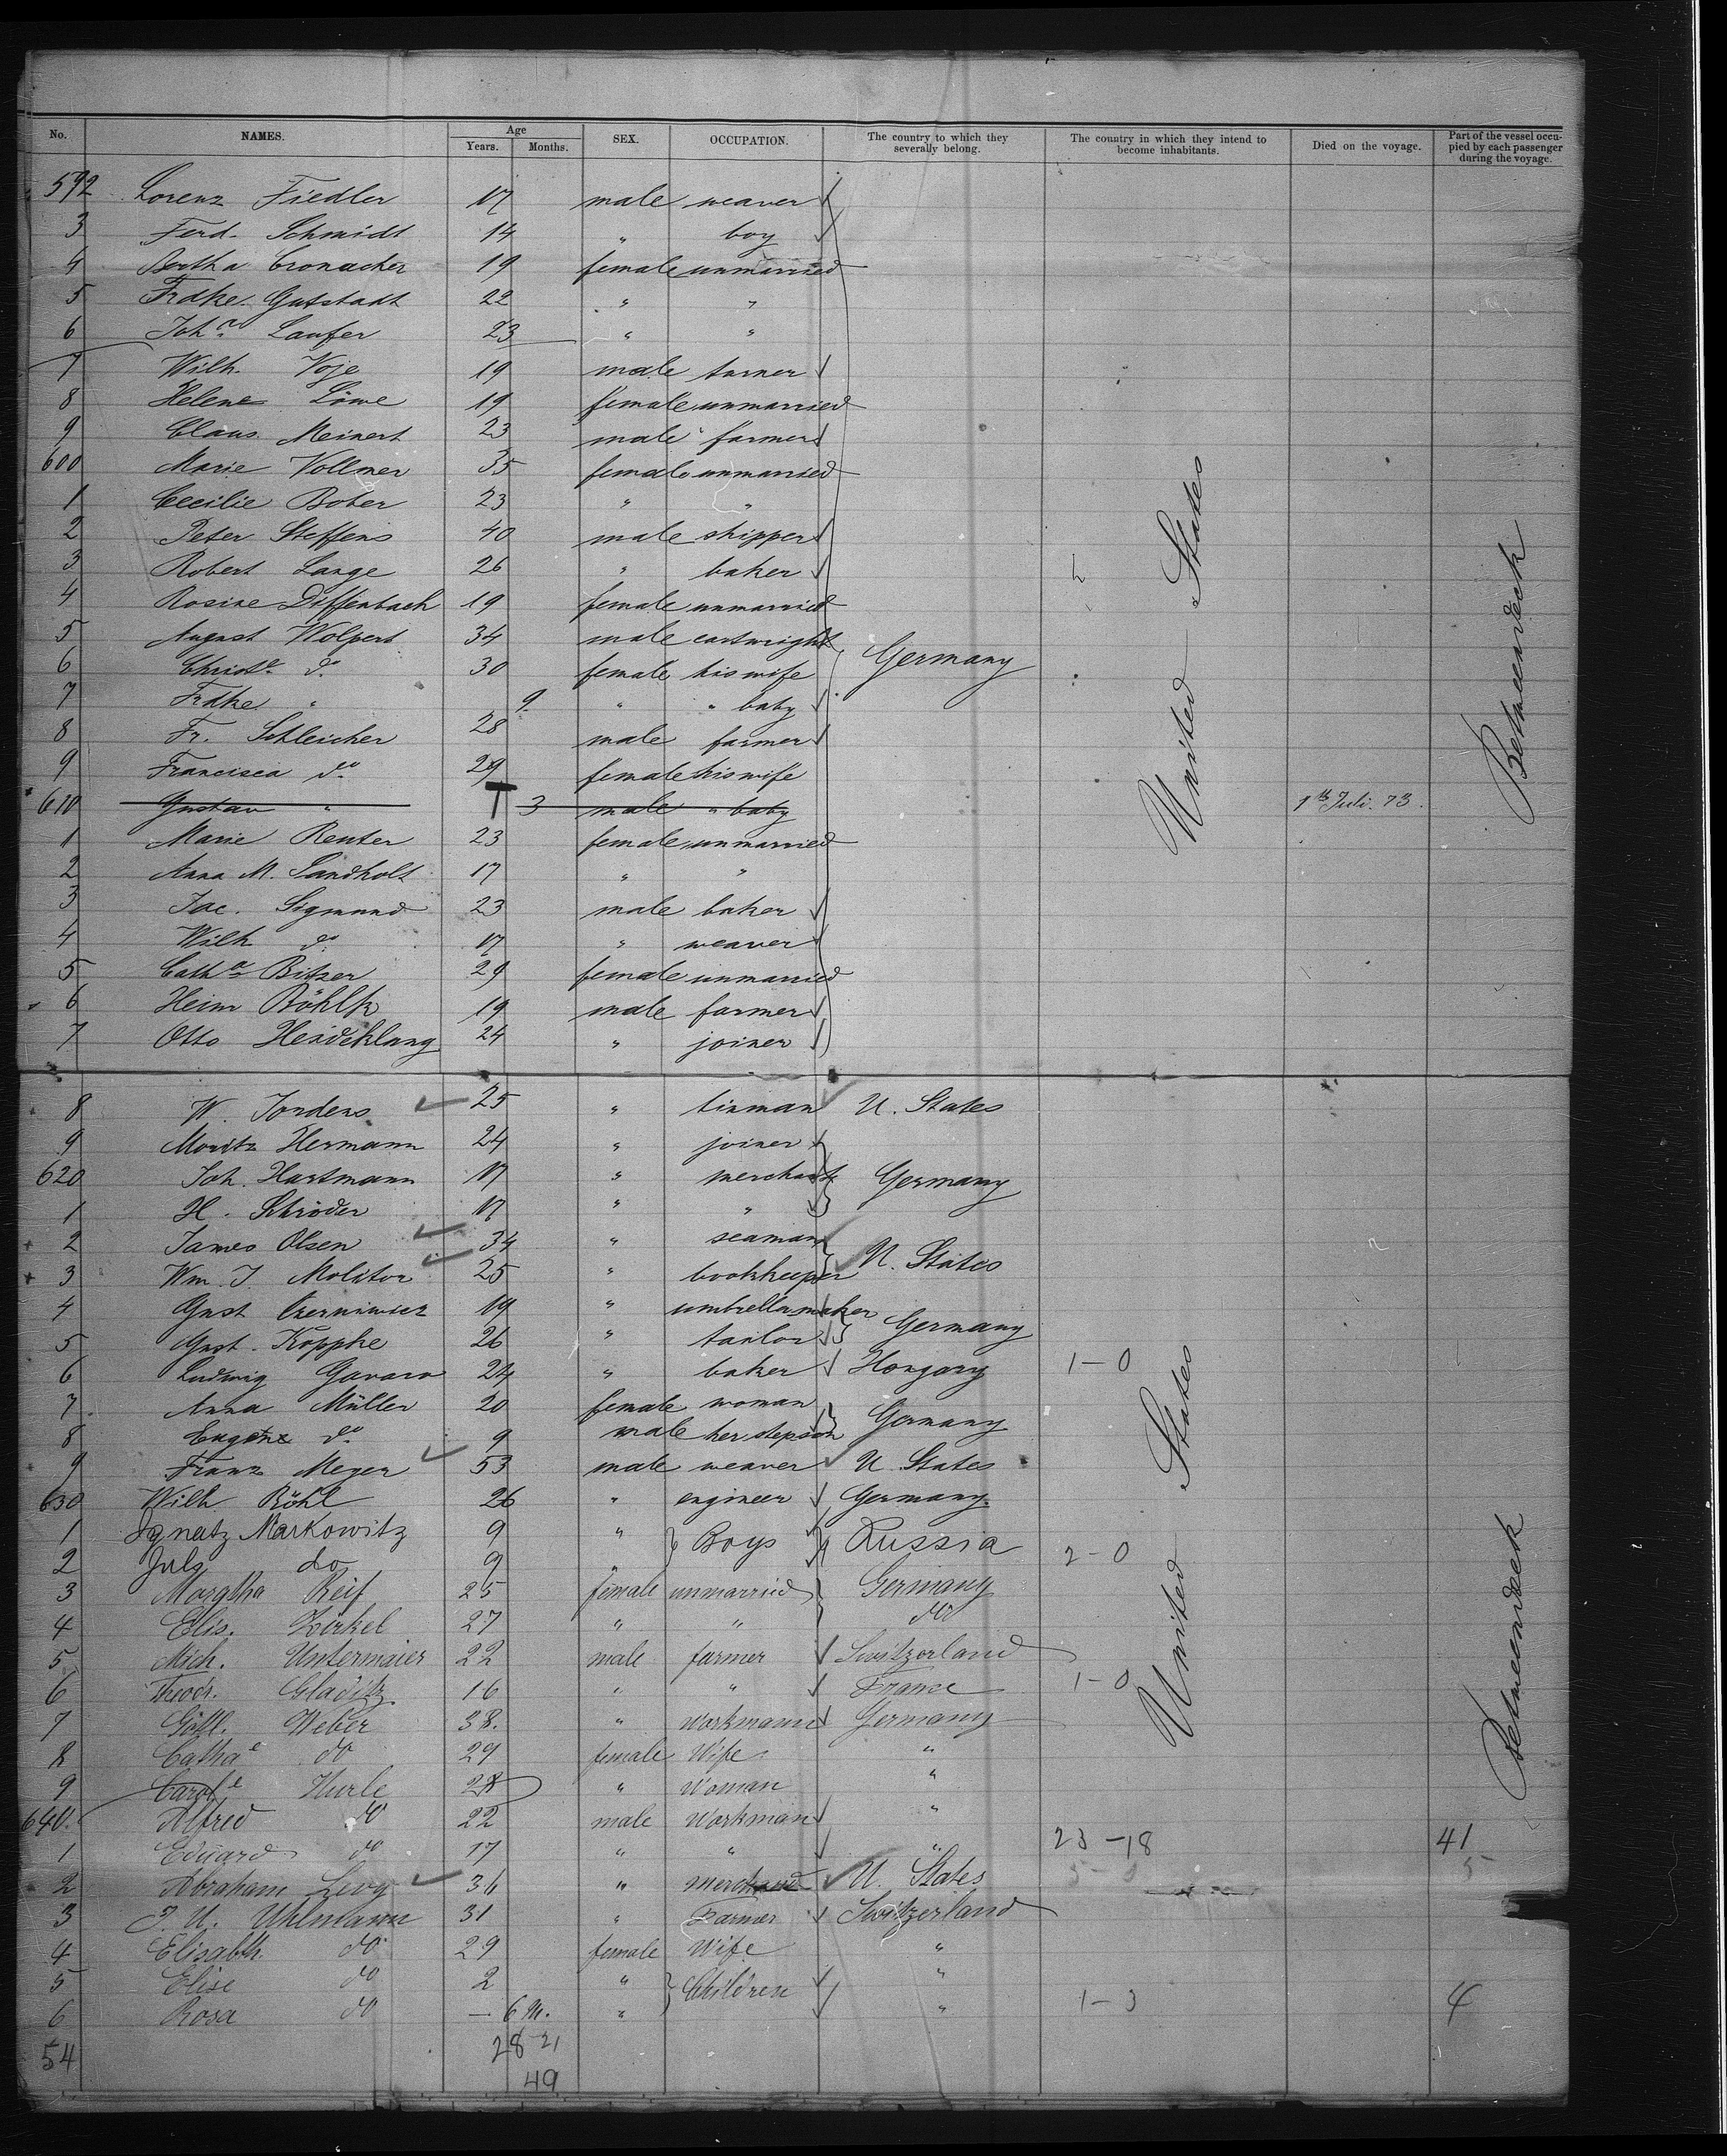 No. NAMES. Age Years. Months. SEX. OCCUPATION. The country to which they severally belong. The country in which they intend to become inhabitants. Died on the voyage. Part of the vessel occupied by each passenger during the voyage.
592 Lorenz Fiedler 17 male weaver
3 Ferd. Schmidt 14 " boy
4 Bertha Cronacher 19 female unmarried
5 Frdke. Gutstadt 22 " "
6 Joh.a Laufer 23 " "
7 Wilh. Voje 19 male turner
8 Helene Löwe 19 female unmarried
9 Claus Meinert 23 male farmer
600 Marie Vollmer 35 female unmarried
1 Cecilie Boter 23 " "
2 Peter Steffens 40 male shipper
3 Robert Lange 26 " baker
4 Rosine Diffenbach 19 female unmarried
5 August Wolpert 34 male cartwright
6 Christe do 30 female his wife Germany
7 Frdke " 9 " " baby
8 Fr. Schleicher 28 male farmer
9 Francisca do 29 female his wife
610 Gustav " 3 male " baby 9th Juli. 73.
1 Marie Renter 23 female unmarried
2 Anna M. Sandholt 17 " "
3 Jac. Sigmund 23 male baker
4 Wilh do 17 " weaver
5 Catha Bitzer 29 female unmarried
6 Heinr Böhlk 19 male farmer
7 Otto Heideklang 24 " joiner
United States
Betweendeck
8 W. Jordens 25 " tinman U. States
9 Moritz Hermann 24 " joiner
620 Joh. Hartmann 17 " merchant Germany
1 H. Schröder 17 " "
2 James Olsen 34 " seaman
3 Wm. J. Molitor 25 " bookkeeper U. States
4 Gust 19 " umbrellamaker Germany
5 Gust. Köppke 26 " tailor
6 Ludwig 24 " baker Hongary 1-0
7 Anna Müller 20 female woman Germany
8 do 9 male her stepson
9 Franz Meyer 53 male weaver U. States
630 Wilh Röhl 26 " engineer Germany.
1 Ignatz Markowitz 9 " Boys Russia
2 Juls do 9 " 2-0
3 Margtha Reif 25 female unmarried Germany
4 Elis. Zirkel 27 " " do
5 Mich. Untermaier 22 male farmer Switzerland
6 Theodr. Gladitz 16 " " France 1-0
7 Gottl. Weber 38. " Workmann Germany
8 Cathae do 29 female Wife "
9 Carole Hurle 28 " Woman "
640. Alfred do 22 male Workman "
1 Eduard do 17 " " " 23-18 41
2 Abraham Levy 36 " merchand U. States
3 J. U. Uhlmann 31 " Farmer Switzerland
4 Elisabth. do 29 female Wife "
5 Elise do 2 " Children "
6 Rosa do — 6 M. " " 1-3 4
United States
Betweendeck
54 28 21
49